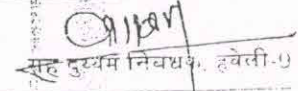 सह दुय्यम निबंधक, हवेली-७